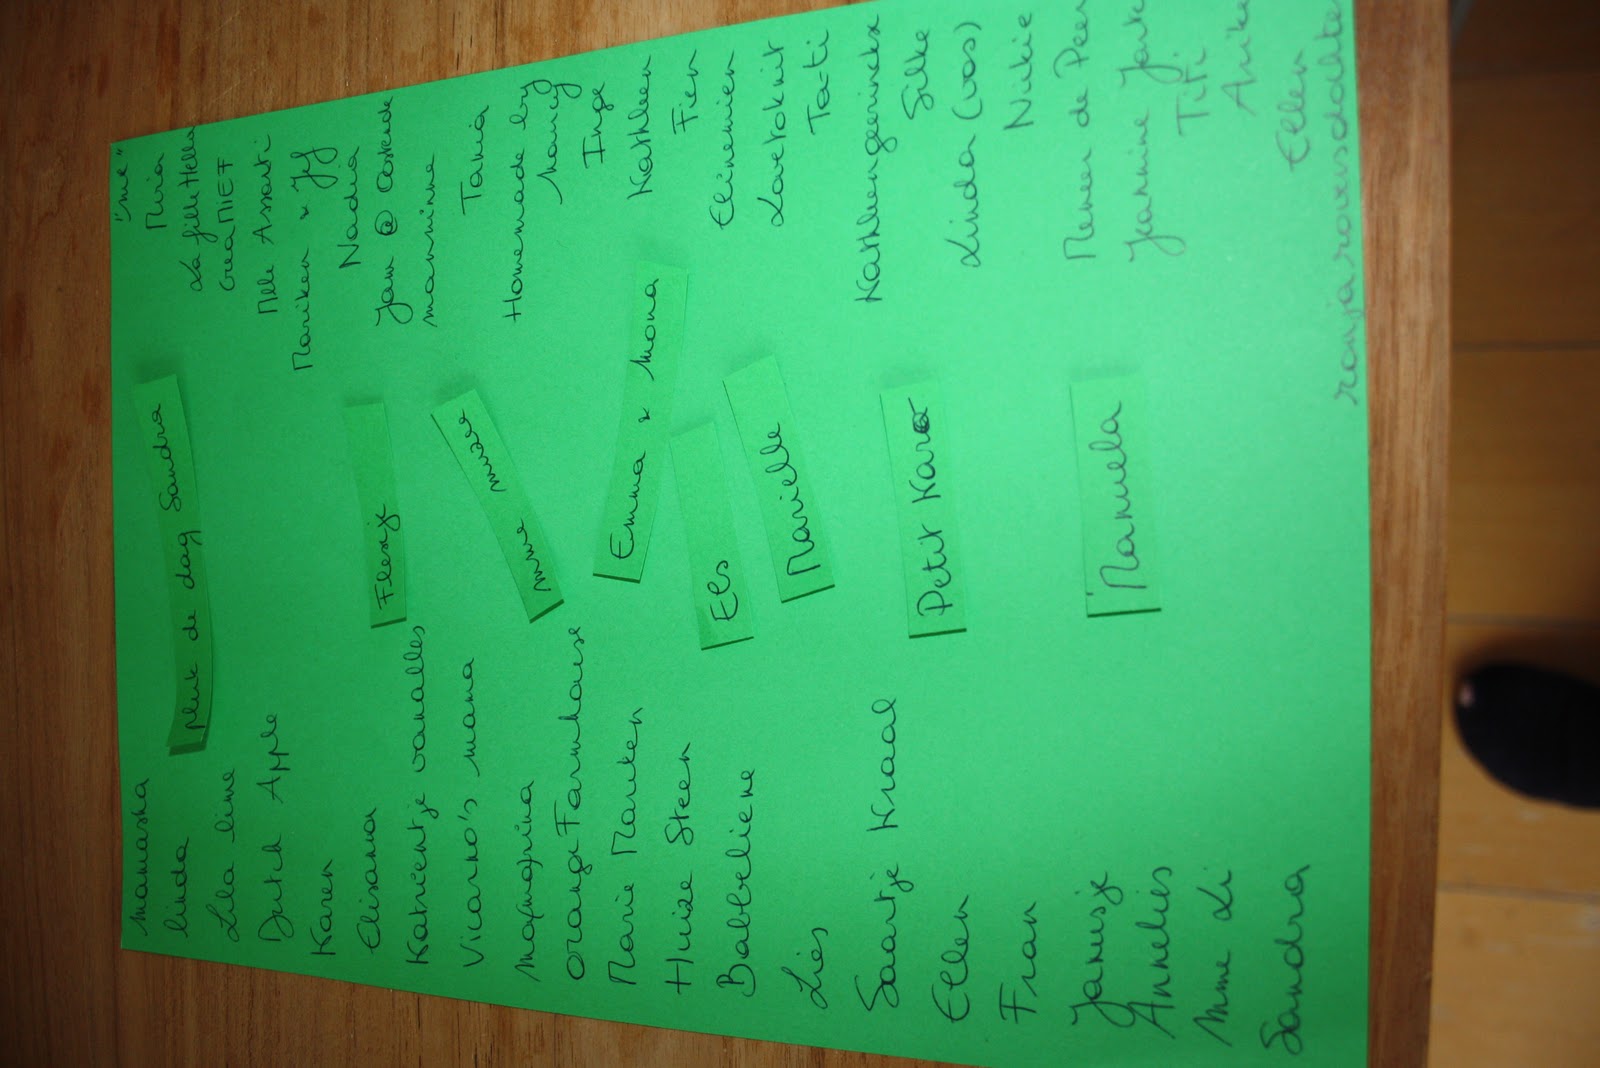 mamasha
linda
Lila lime
Dutch Apple
Karen
Elisanna
Katrientje vanalles
Vicarno's mama
maqmaqrina
orange Farmhouse
Marie Marken
Huize Steen
Babbeliene
Lies
Saartje Kraal
Ellen
Fran
Janusje
Annelies
Mme Li
Sandra
pluk de dag Sandra
Flesje
mme muse
Emma & Mona
Els
Marielle
Petit Karo
Manuela
"me"
Miria
La fille Hella
creaMIEF
Mlle Assorti
Mariken & Jef
Nadia
Jam @ Ostende
mannimne
Tania
Homemade by
Nancy
Inge
Kathleen
Fien
Elinemien
Lovetoknit
Ta-ti
Kathleengeerinckx
Silke
Linda (vos)
Nikie
Mener de Peer
Jeannine
TiTi
Anike
Ellen
ranjaroversdochter